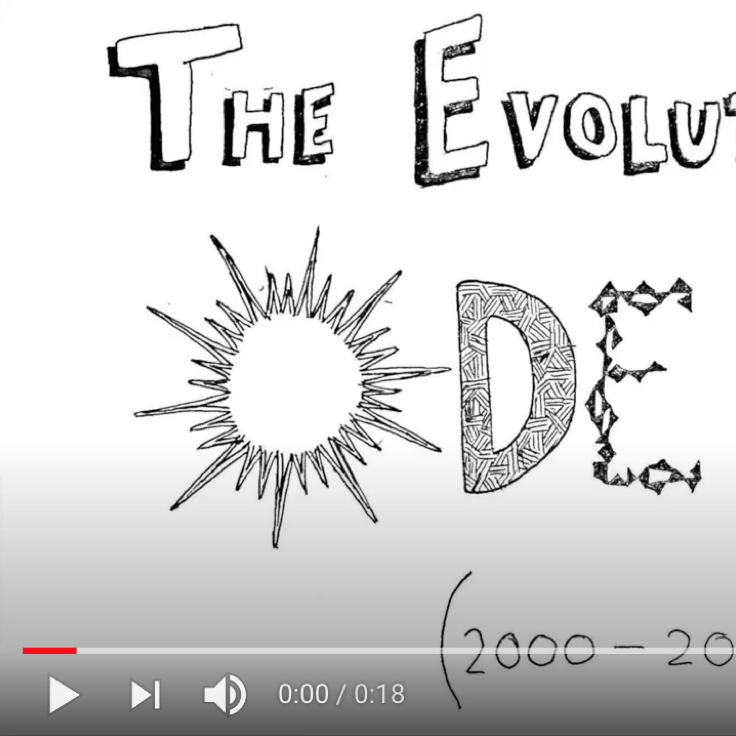 THE EVOLUT
ODE
(2000 – 20
0:00 / 0:18